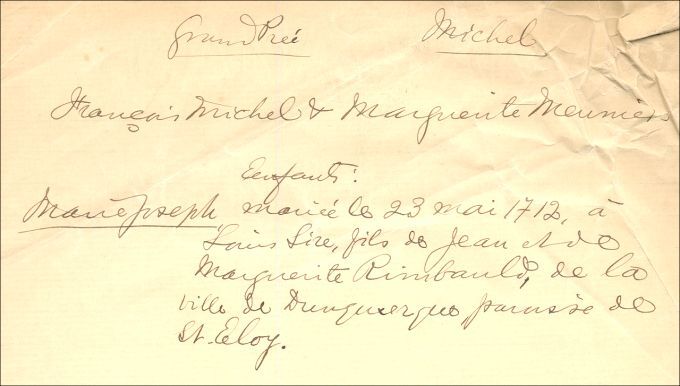 Grand Préé Michel
François Michel & Marguerite Meuniers
Enfants:
Marie Joseph, mariée le 23 mai 1712, à
Louis Sire, fils de Jean et de
Marguerite Rimbauld, de la
ville de Dunquerque paroisse de
St. Eloy.